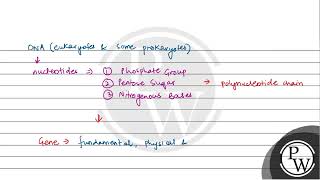 DNA (eukaryotes & some prokaryotes)
↓
nucleotides ⇒ ① Phosphate Group
② Pentose Sugar → polynucleotide chain
③ Nitrogenous Bases
↓
Gene → fundamental, physical &
PW